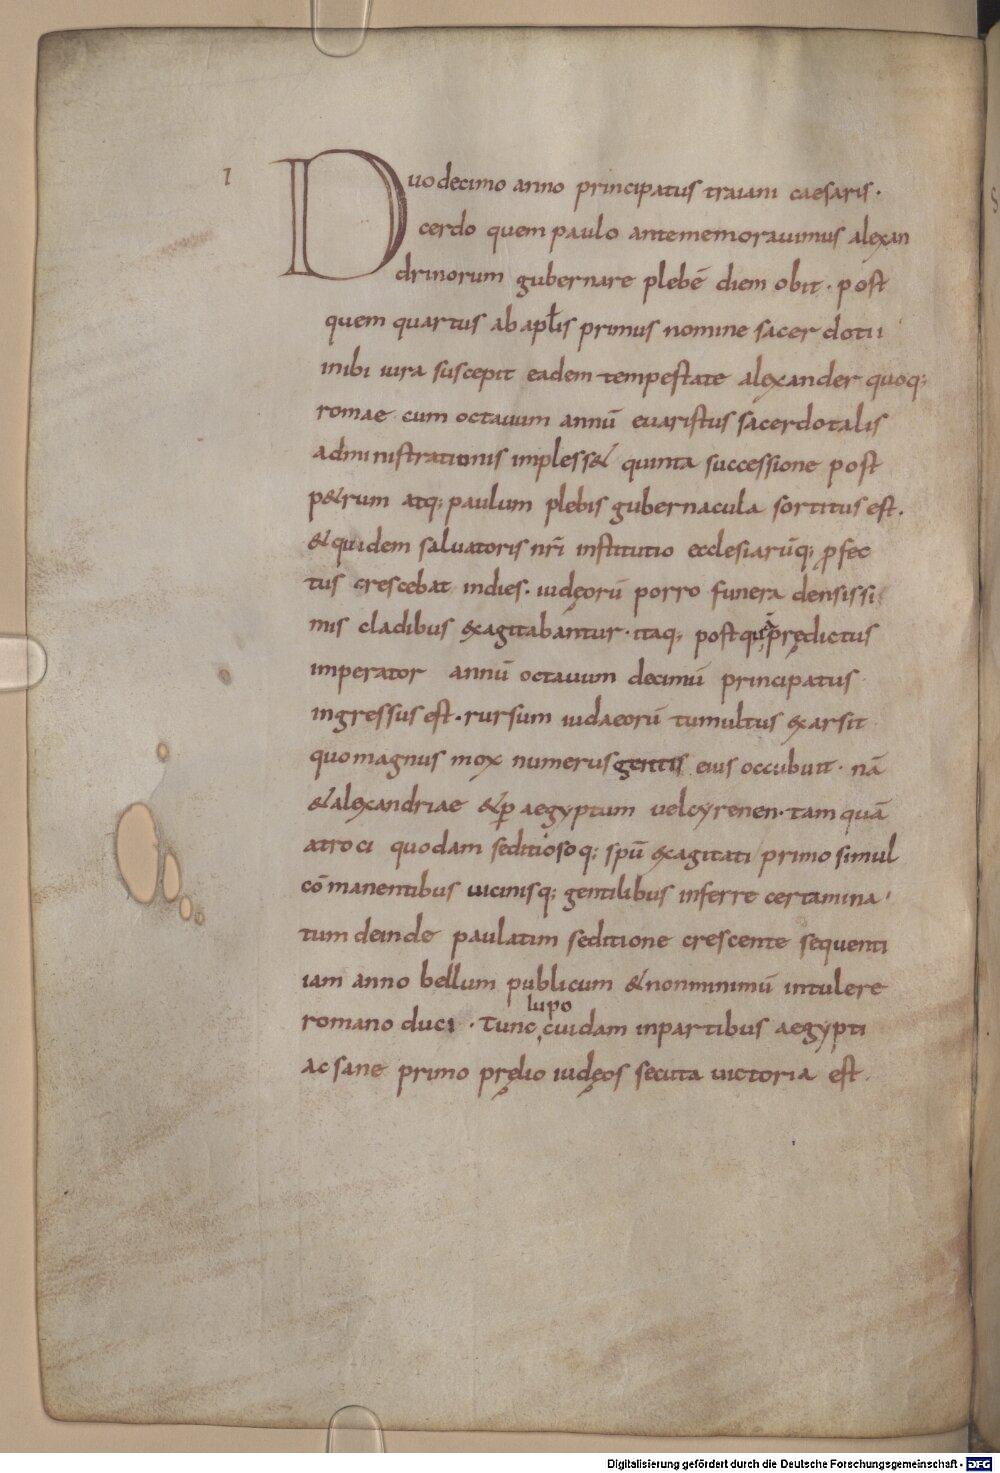 I
Duodecimo anno principatus traiani caesaris·
cerdo quem paulo antememorauimus alexan
drinorum gubernare plebē diem obiit· post
quem quartus ab apl̄is primus nomine sacerdotii
inibi iura suscepit eadem tempestate alexander quoq;
romae cum octauum annū euaristus sacerdotalis
administrationis impless& quinta successione post
p&rum atq; paulum plebis gubernacula sortitus est.
& quidem saluatoris nr̄i institutio ecclesiarūq; ꝓfec
tus crescebat indies. iudęorū porro funera densissi
mis cladibus exagitabantur· itaq; postquā prędictus
imperator annū octauum decimū principatus
ingressus est. rursum iudaeorū tumultus exarsit
quo magnus mox numerus gentis eius occubuit· nā
& alexandriae & ꝑ aegyptum uel cyrenen· tamquā
atroci quodam seditiosoq; spū exagitati primo simul
cōmanentibus uicinisq; gentilibus inferre certamina·
tum deinde paulatim seditione crescente sequenti
iam anno bellum publicum & nonminimū intulere
lupo
romano duci· Tunc cuidam inpartibus aegypti
ac sane primo pręlio iudęos secuta uictoria est·
Digitalisierung gefördert durch die Deutsche Forschungsgemeinschaft - DFG